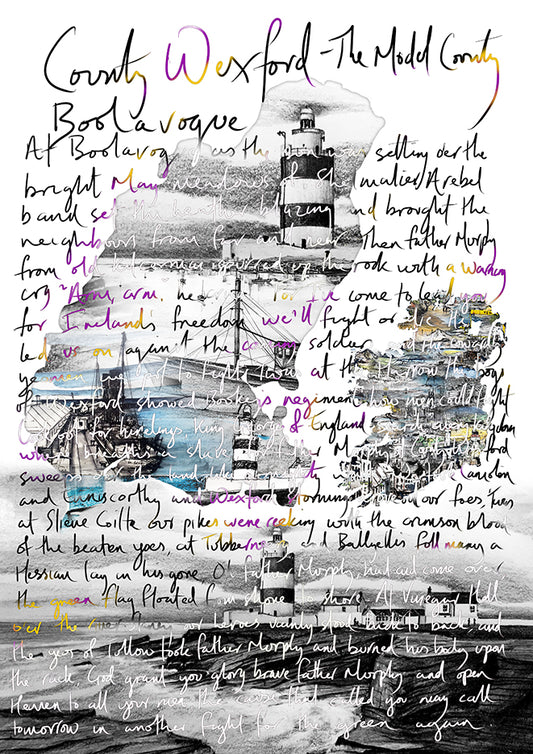 County Wexford - The Model County
Boolavogue
At Boolavogue as the sun was setting o'er the
bright May meadows of Shelmalier A rebel
band set the heather blazing and brought the
neighbours from far and near Then father Murphy
from old Kilcormac spurred up the rock with a warning
cry "Arm, arm, he cried, for I've come to lead you
for Irelands freedom we'll fight or die
led us on again't the coming soldier and the cowardly
yeomen
of Wexford showed Bookeys regiment how men could fight
Look out for hirelings King George of England search every kingdom
where breathes a slave for father Murphy of County Wexford
sweeps o'er the land like a mighty
and Enniscorthy and Wexford storming
at Slieve Coilte our pikes were reeking with the crimson blood
of the beaten yeos, at Tubberneering and Ballyellis full many a
Hessian lay in his gore. O! father Murphy, had aid come over
the green flag floated from shore to shore. At Vinegar Hill
o'er the our heroes vainly stood back to back, and
the yeos of Tullow took father Murphy and burned his body upon
the rack, God grant you glory brave father Murphy and open
Heaven to all your men the cause that called you may call
tomorrow in another fight for the green again.